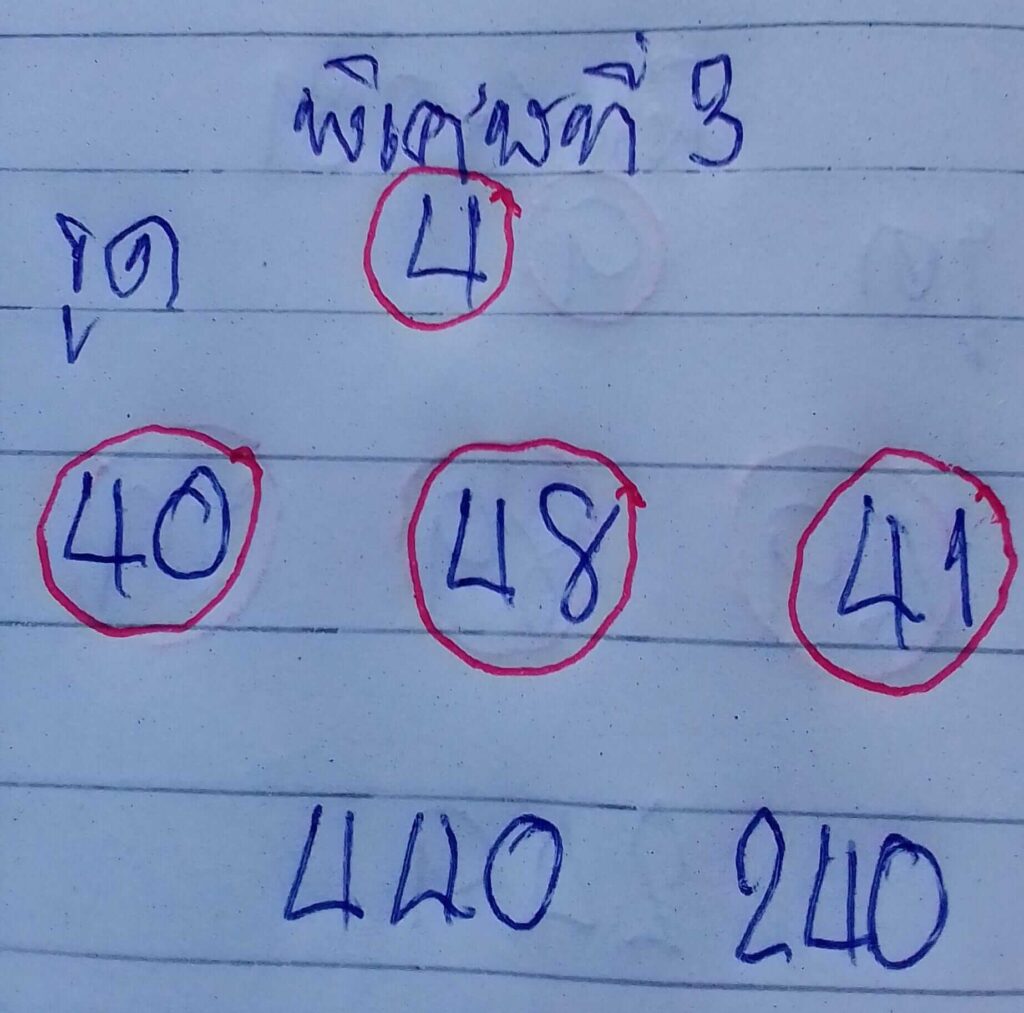 พิเศษที่ 3
รูด 4
40 48 41
440 240